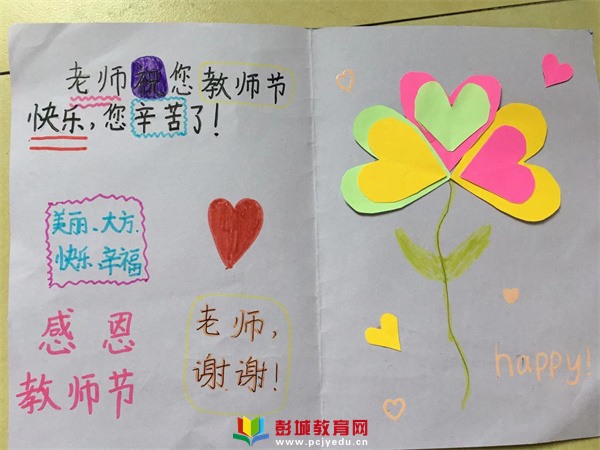 老师祝您教师节
快乐，您辛苦了！
美丽、大方、
快乐、辛福
感恩
教师节
老师，
谢谢！
happy!
彭城教育网
www.pcjyedu.cn